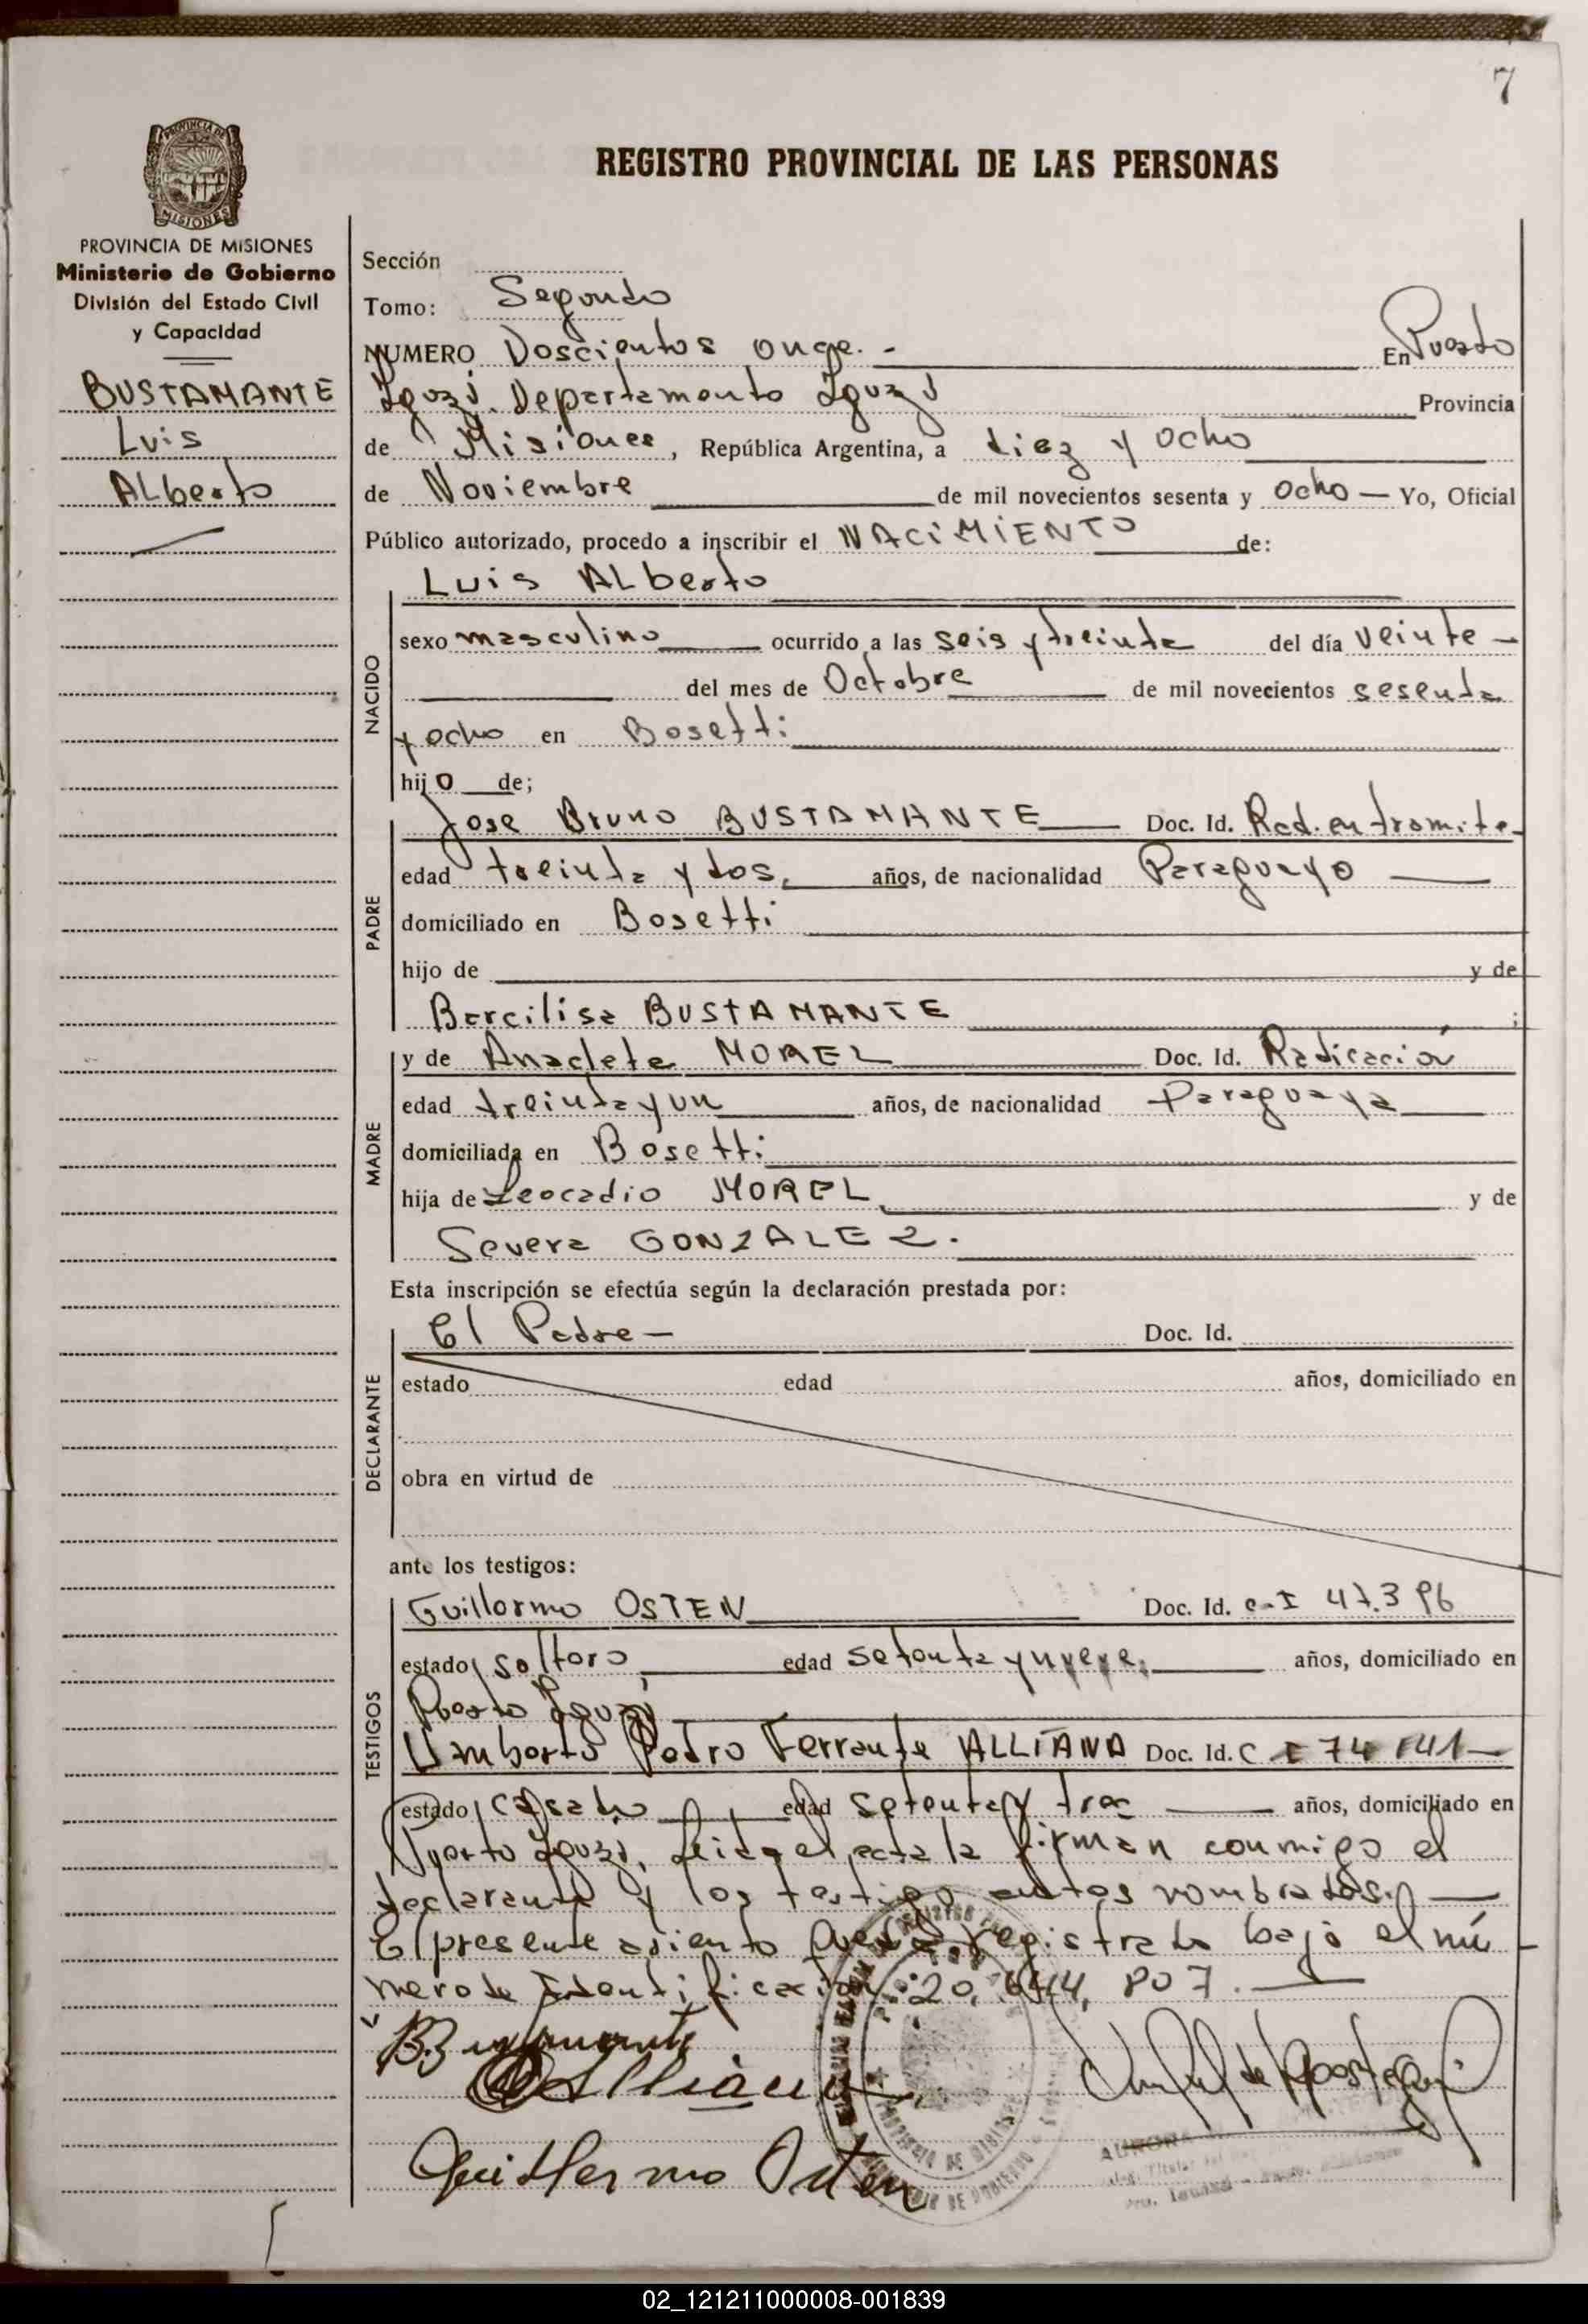 7
PROVINCIA DE MISIONES
REGISTRO PROVINCIAL DE LAS PERSONAS
PROVINCIA DE MISIONES
Ministerio de Gobierno
División del Estado Civil
y Capacidad
BUSTAMANTE
Luis
Alberto
Sección
Tomo: Segundo
NUMERO Doscientos once. - En Puerto
Iguazú. Departamento Iguazú Provincia
de Misiones, República Argentina, a diez y ocho
de Noviembre de mil novecientos sesenta y ocho — Yo, Oficial
Público autorizado, procedo a inscribir el NACIMIENTO de:
Luis Alberto
NACIDO
sexo masculino ocurrido a las seis y treinta del día veinte -
del mes de Octubre de mil novecientos sesenta
y ocho en Bosetti
hijo de;
PADRE
Jose Bruno BUSTAMANTE Doc. Id. Rad. en tramite
edad treinta y dos, años, de nacionalidad Paraguayo
domiciliado en Bosetti
hijo de y de
Barcilisa BUSTAMANTE ;
MADRE
y de Anacleta MOREL Doc. Id. Radicación
edad treinta y un años, de nacionalidad Paraguaya
domiciliada en Bosetti
hija de Leocadio MOREL y de
Severa GONZALEZ.
Esta inscripción se efectúa según la declaración prestada por:
DECLARANTE
El Padre — Doc. Id.
estado edad años, domiciliado en
obra en virtud de
ante los testigos:
TESTIGOS
Guillermo OSTEN Doc. Id. c-I 47.396
estado soltero, edad setenta y nueve, años, domiciliado en
Puerto Iguazú
Umberto Pedro Ferrante ALLIANA Doc. Id. C I 74 141—
estado casado edad setenta y tres años, domiciliado en
Puerto Iguazú, leida el acta la firman conmigo el
declarante y los testigo antes nombrados. —
El presente asiento queda registrado bajo el nú
mero de Identificación: 20,644,807. —
B Bustamante
Alliana
Guillermo Osten
PROVINCIA DE MISIONES
02_121211000008-001839